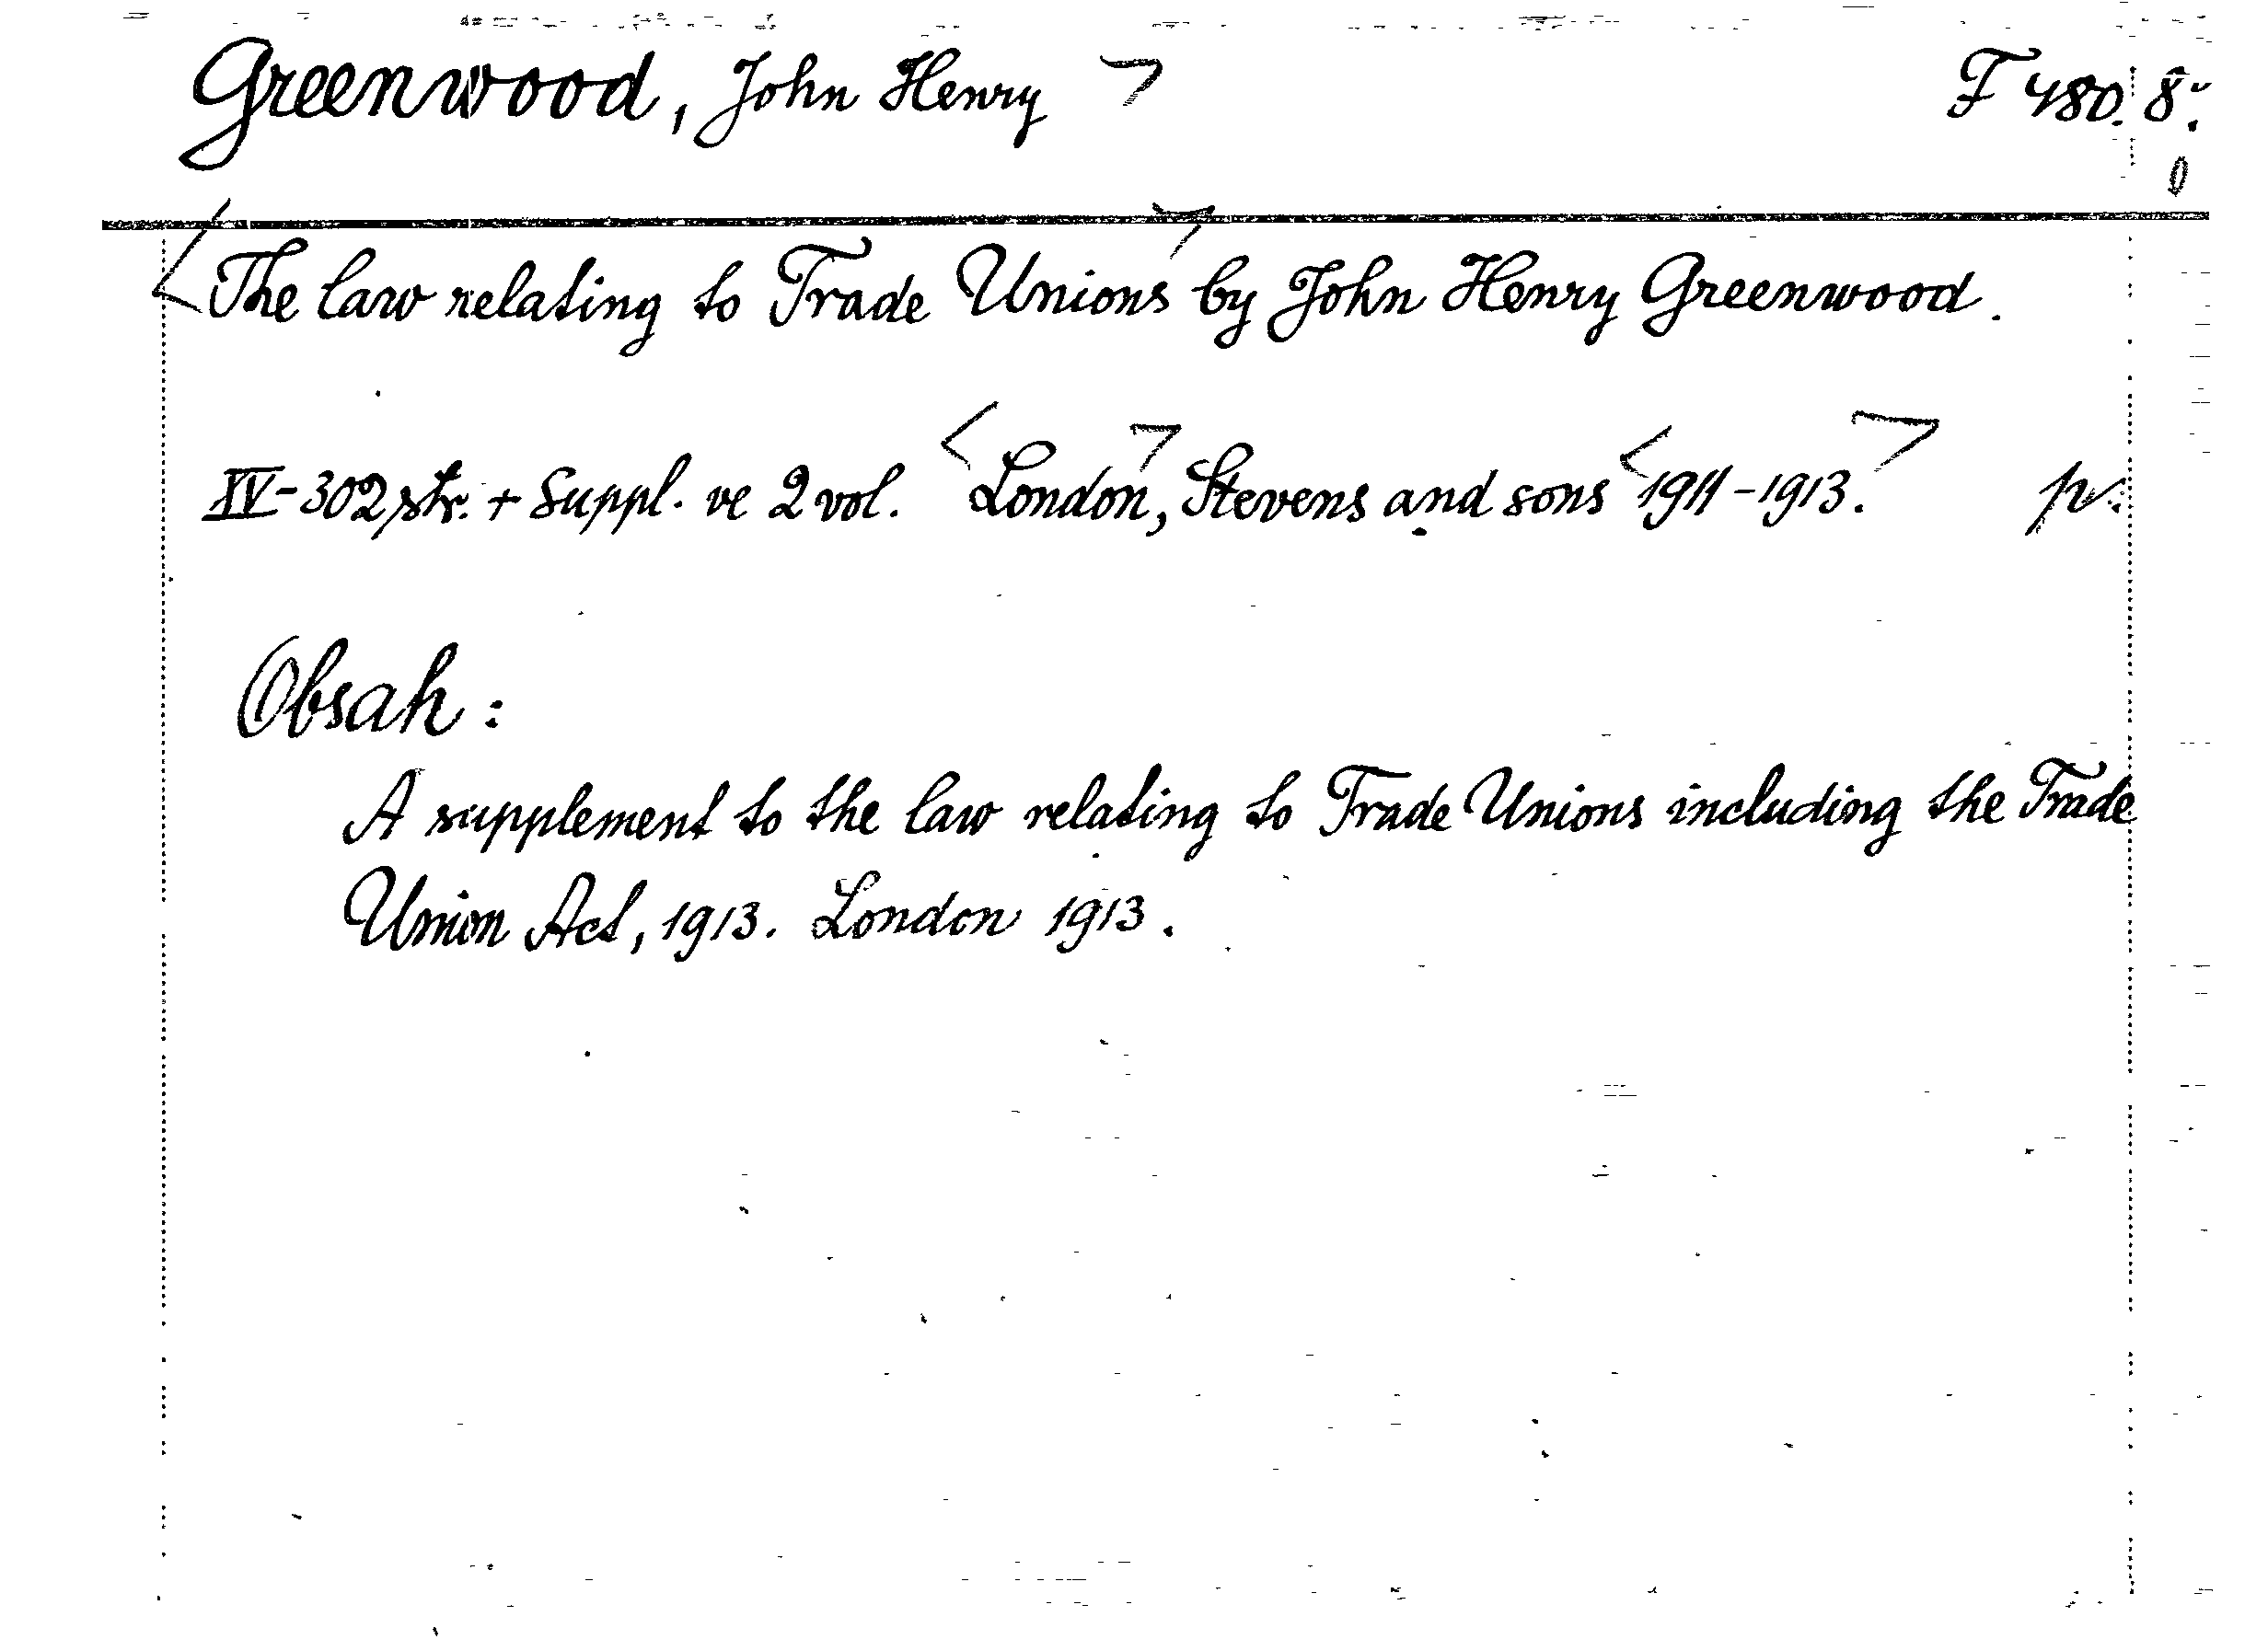 Greenwood, John Henry > F 480. 8°.
0
<The law relating to Trade Unions> by John Henry Greenwood.
XV-302 str. + Suppl. ve 2 vol. <London>, Stevens and sons <1911-1913.> pv.
Obsah:
A supplement to the law relating to Trade Unions including the Trade
Union Act, 1913. London 1913.